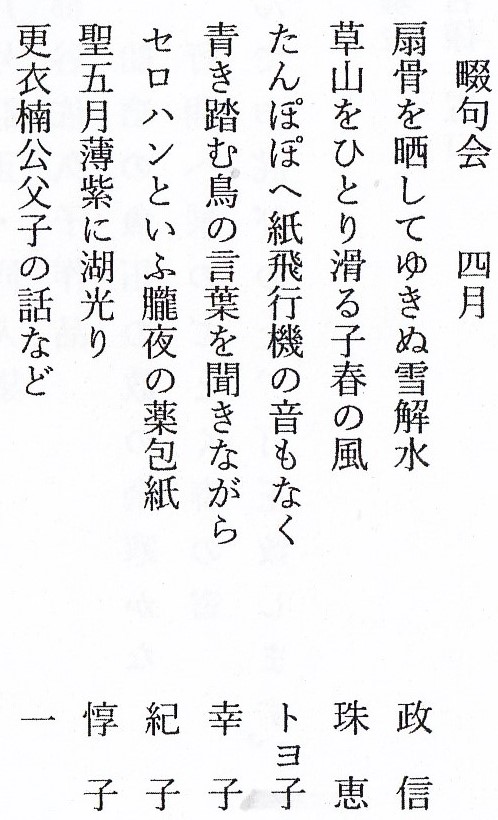 畷句会　四月
扇骨を晒してゆきぬ雪解水　政信
草山をひとり滑る子春の風　珠恵
たんぽぽへ紙飛行機の音もなく　トヨ子
青き踏む鳥の言葉を聞きながら　幸子
セロハンといふ朧夜の薬包紙　紀子
聖五月薄紫に湖光り　惇子
更衣楠公父子の話など　一